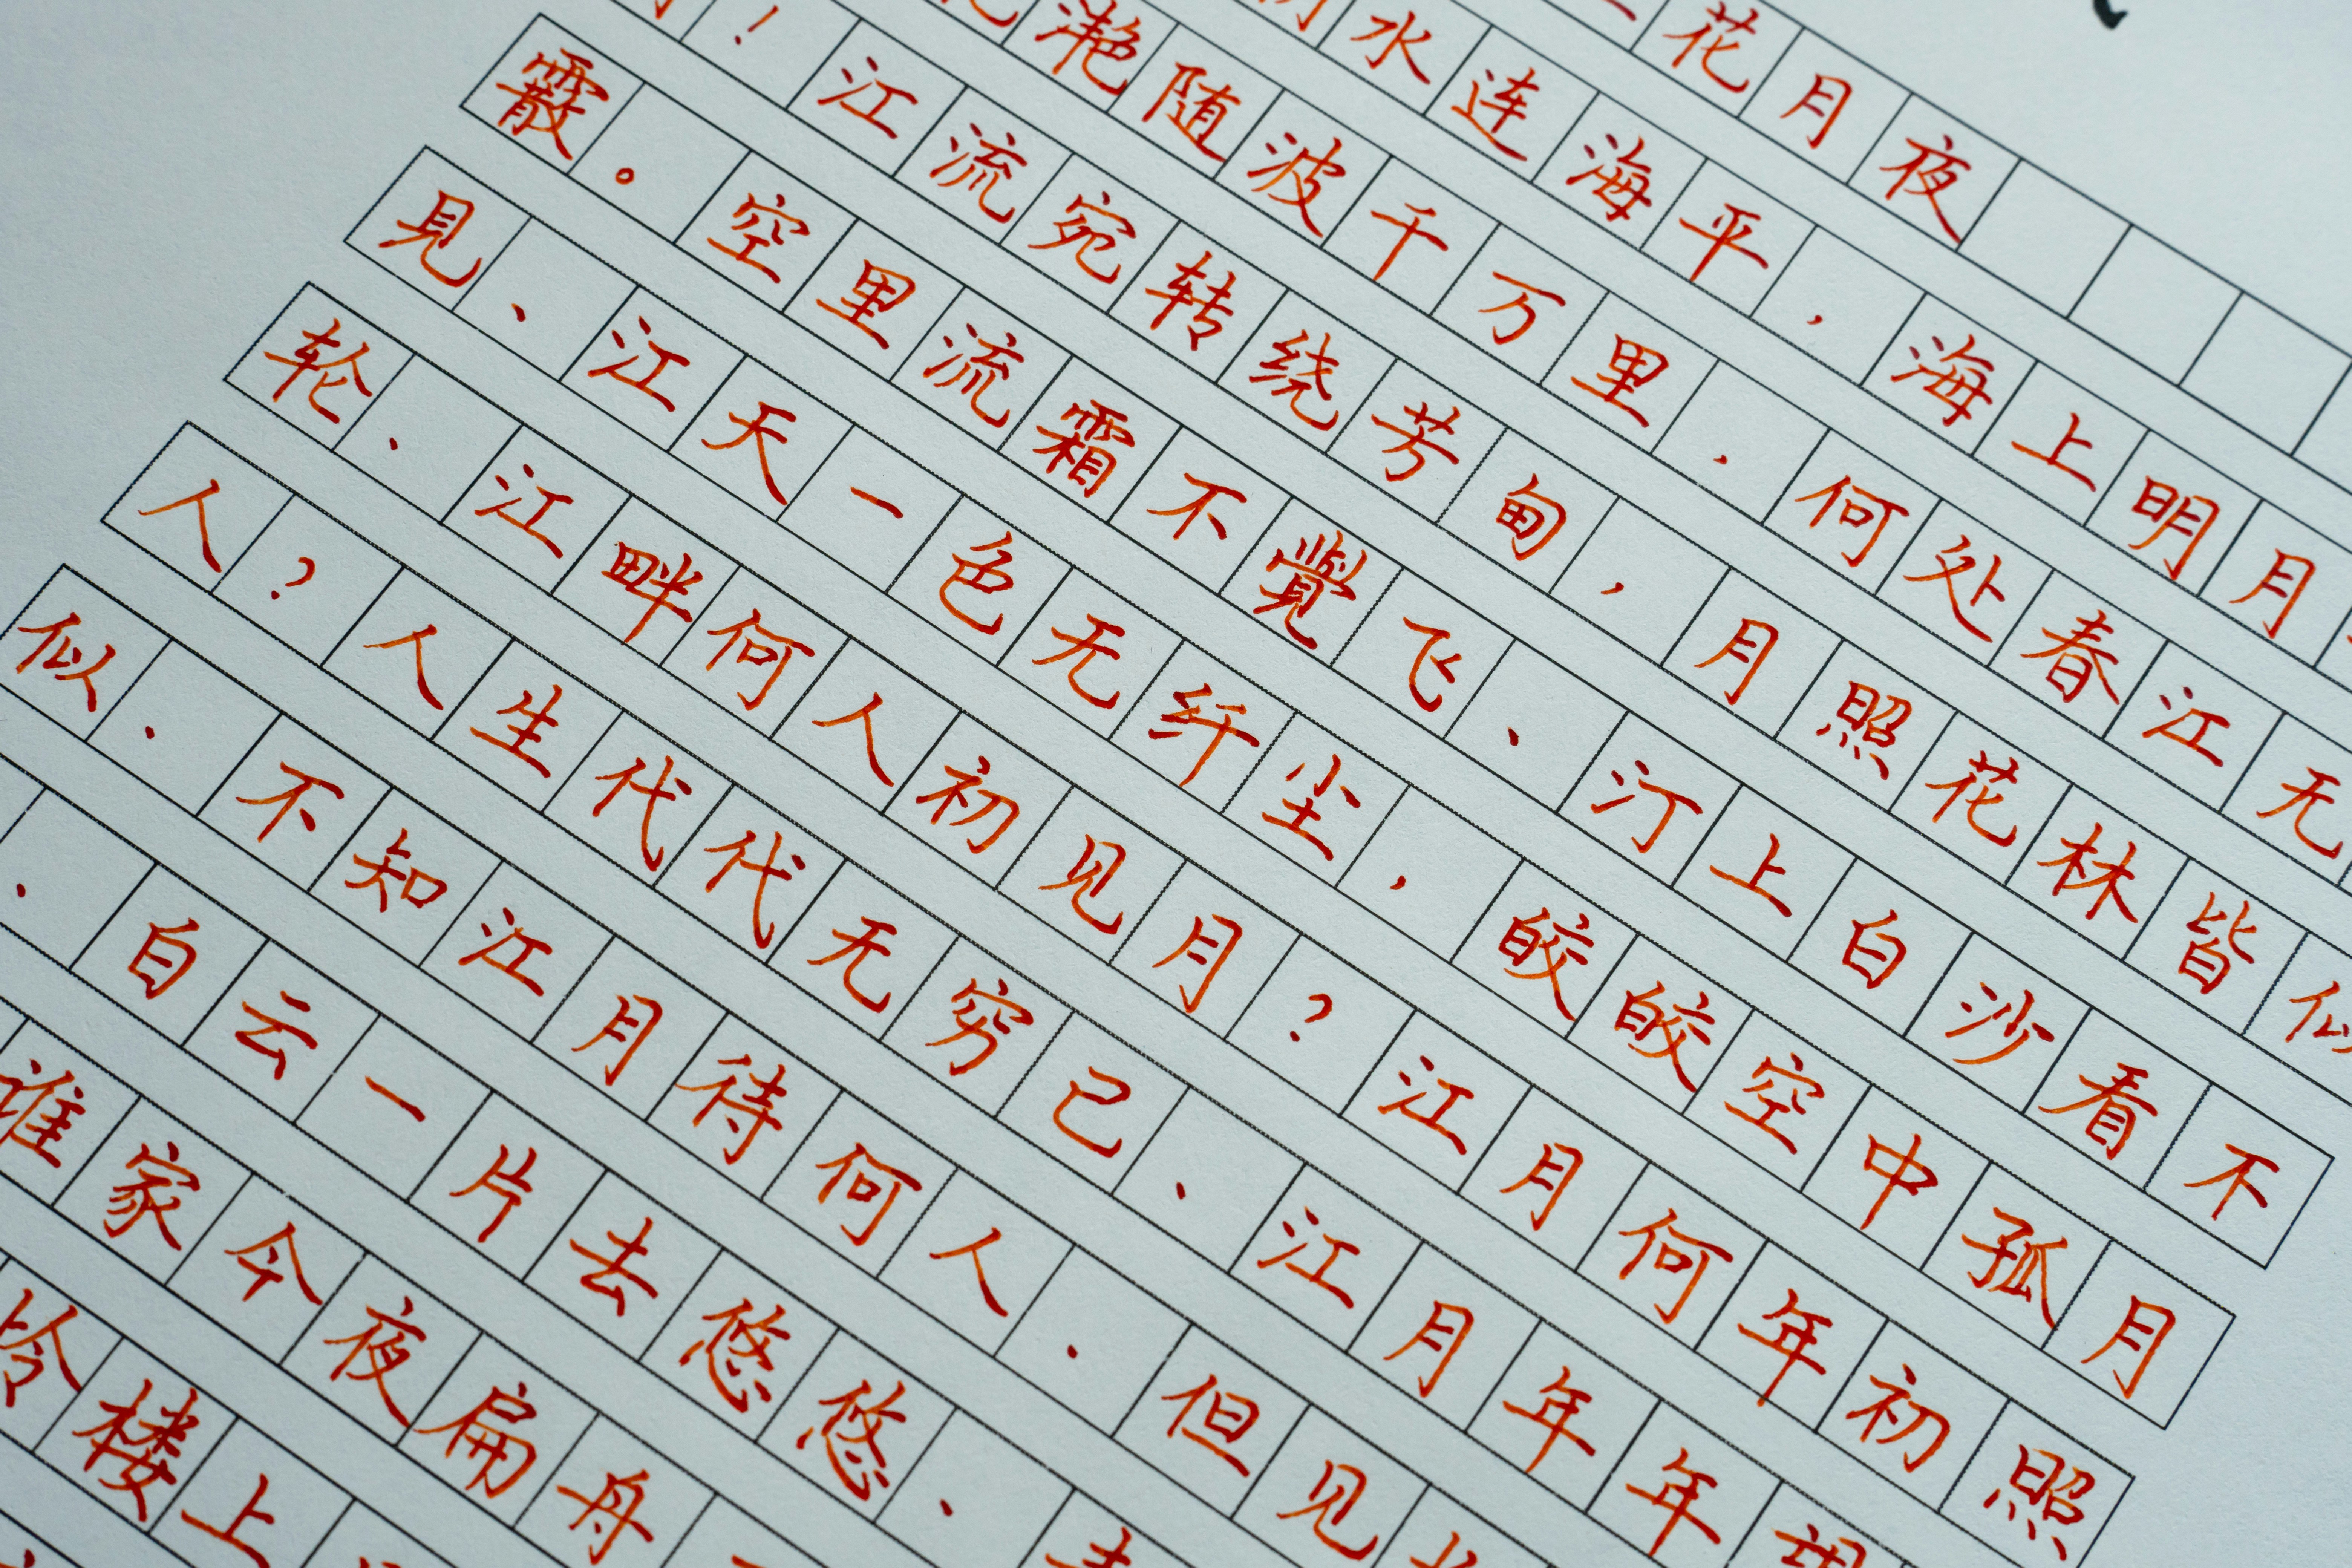 花月夜
水连海平，海上明月
滟随波千万里．何处春江无
！江流宛转绕芳甸，月照花林皆似
霰。空里流霜不覺飞、汀上白沙看不
見、江天一色无纤尘，皎皎空中孤月
轮、江畔何人初见月？江月何年初照
人？人生代代无穷己、江月年年望
似．不知江月待何人．但见
．白云一片去悠悠、
谁家今夜扁舟
怜楼上